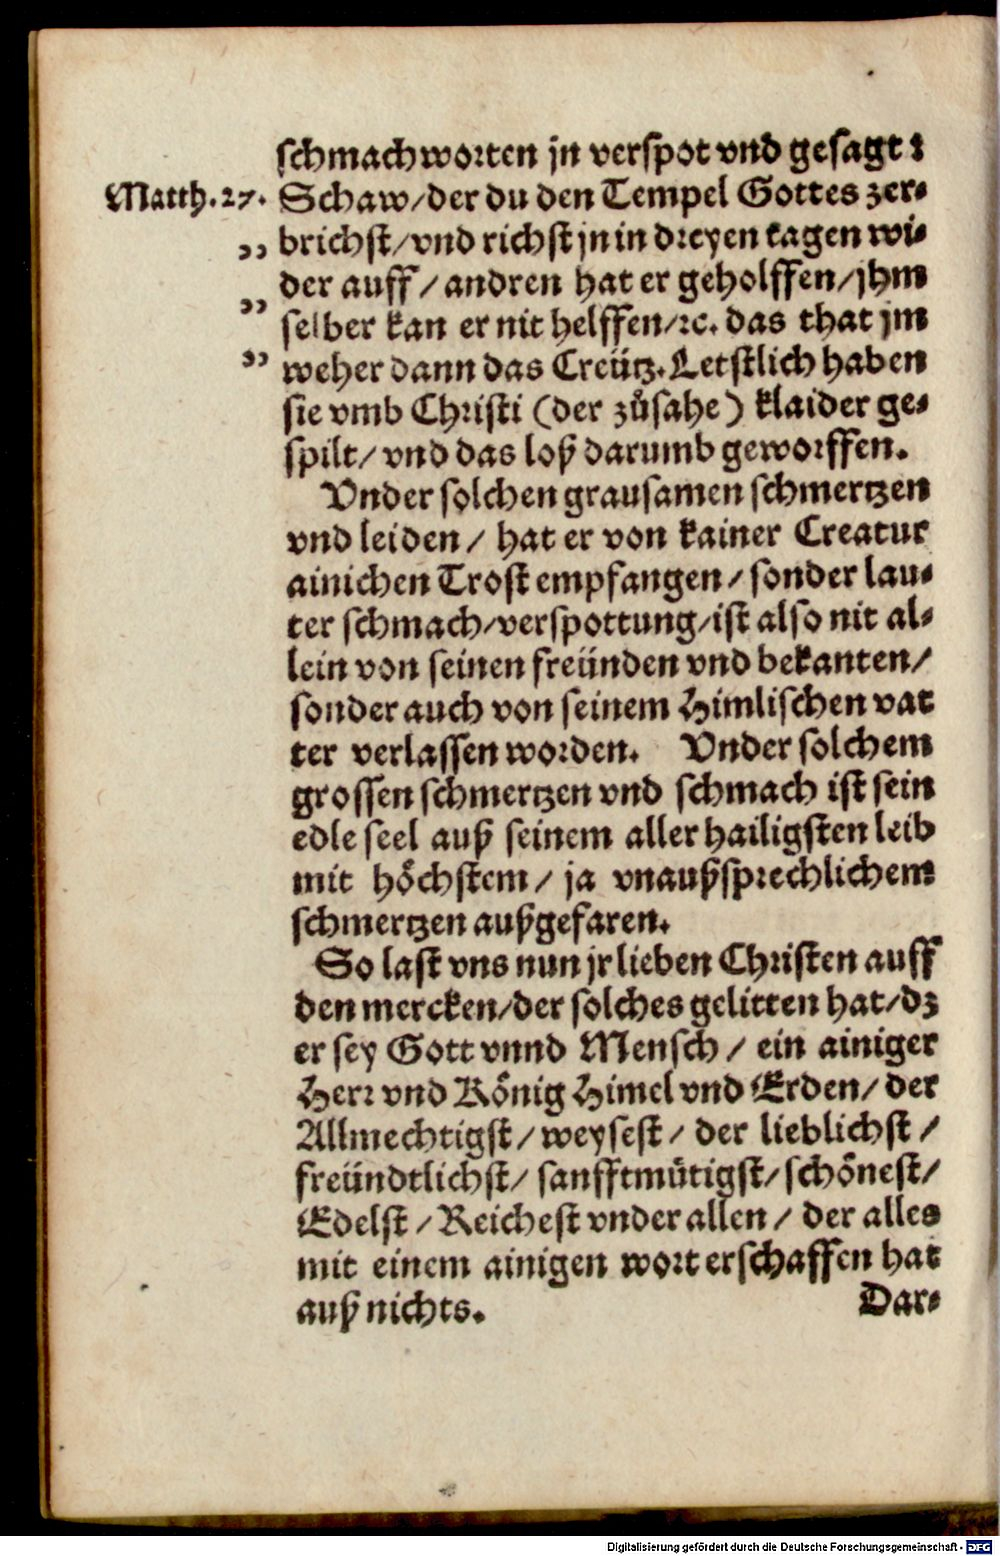 schmachworten jn verspot vnd gesagt:
Matth. 27. Schaw/der du den Tempel Gottes zer⸗
„ brichst/vnd richst jn in dreyen tagen wi⸗
„ der auff/andren hat er geholffen/jhm
selber kan er nit helffen/ꝛc. das that jm
„ weher dann das Creütz. Letstlich haben
sie vmb Christi (der zůsahe) klaider ge⸗
spilt/vnd das loß darumb geworffen.
Vnder solchen grausamen schmertzen
vnd leiden/hat er von kainer Creatur
ainichen Trost empfangen/sonder lau⸗
ter schmach/verspottung/ist also nit al⸗
lein von seinen freünden vnd bekanten/
sonder auch von seinem Himlischen vat
ter verlassen worden. Vnder solchem
grossen schmertzen vnd schmach ist sein
edle seel auß seinem aller hailigsten leib
mit höchstem/ja vnaußsprechlichem
schmertzen außgefaren.
So last vns nun jr lieben Christen auff
den mercken/der solches gelitten hat/dz
er sey Gott vnnd Mensch/ein ainiger
Herr vnd König Himel vnd Erden/der
Allmechtigst/weysest/der lieblichst/
freündtlichst/sanfftmütigst/schönest/
Edelst/Reichest vnder allen/der alles
mit einem ainigen wort erschaffen hat
auß nichts. Dar⸗
Digitalisierung gefördert durch die Deutsche Forschungsgemeinschaft - DFG